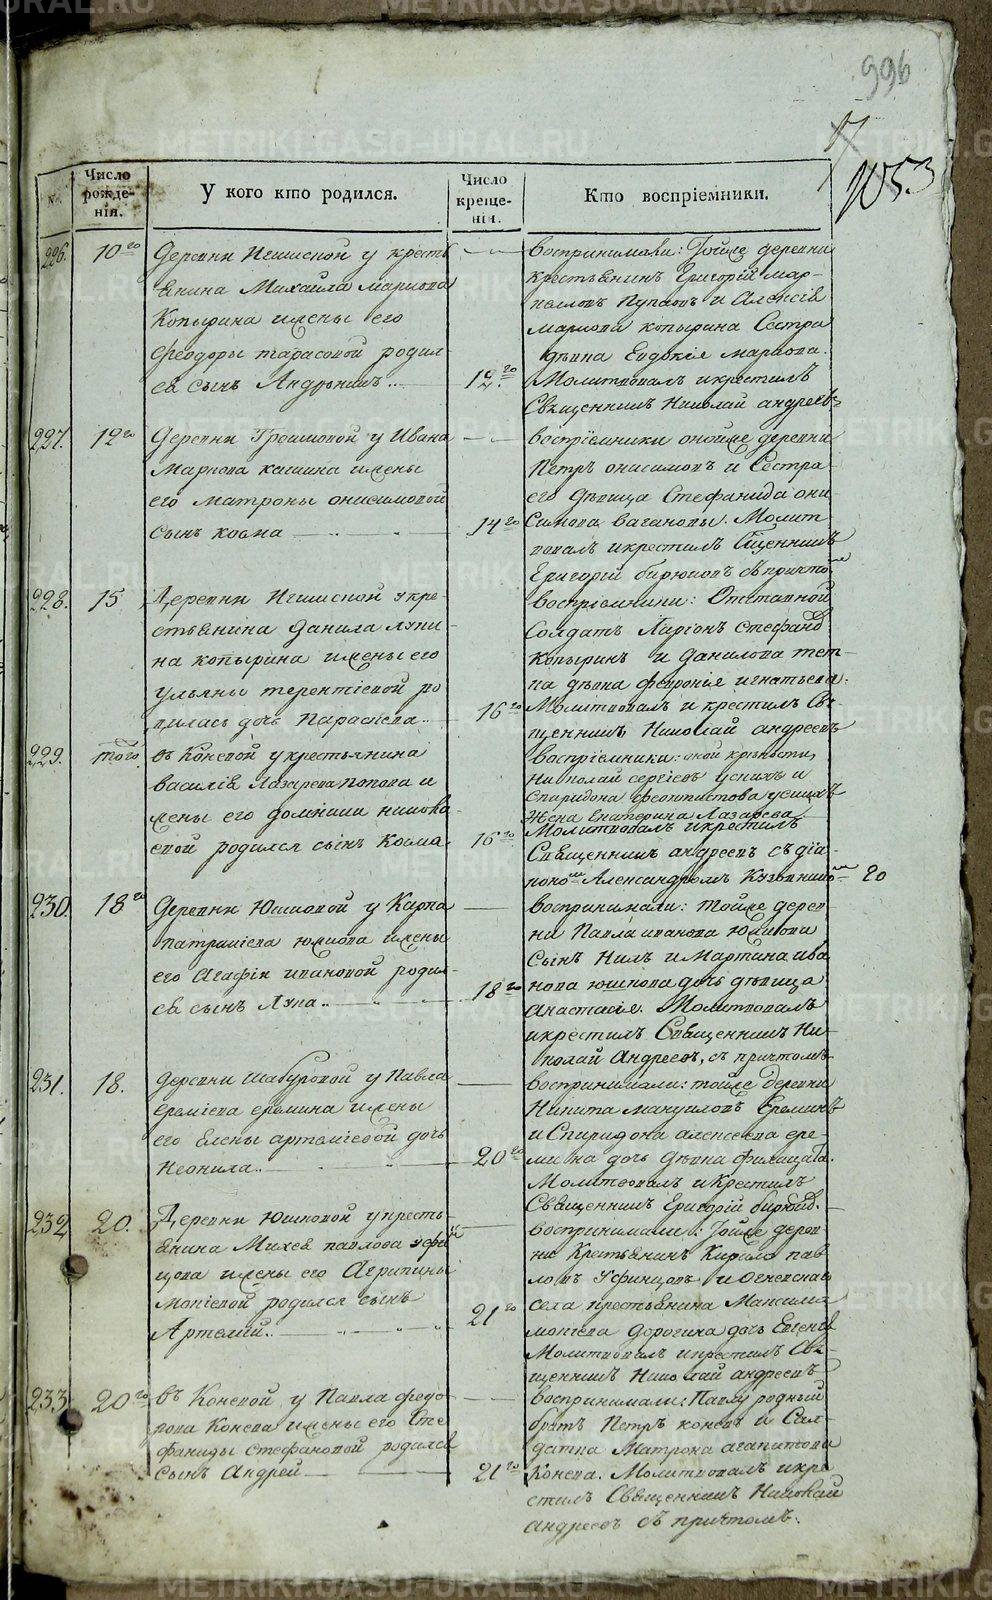 996
17
1053
№
Число рожде-нія.
У кого кто родился.
Число креще-нія.
Кто воспріемники.
226. 10го
Деревни Игишской у кресть
янина Михайла Маркова
Копырина жены его
Феодоры Тарасовой родил-
ся сынъ Андроникъ..
12го
воспринимали: Тойже деревни
крестьянинъ Григорій Мар-
Пупковъ и Алексія
Маркова Копырина Сестра
девка Евдокія Маркова.
Молитвовалъ и крестилъ
Священникъ Николай Андреевъ
227. 12го
Деревни у Ивана
Маркова Кашина жены
его Матроны Онисимовой
сынъ Косма
14го
воспріемники онойже деревни
Петръ Онисимовъ и Сестра
его девица Стефанида Они
симова Вагановы. Молит
вовалъ и крестилъ Священникъ
Григорій Бирюковъ съ причтомъ
228. 15
Деревни Игишской у кре-
стьянина Данила Лупи
на Копырина жены его
Ульяны Терентіевой ро
дилась дочь Параскева..
16го
воспріемники: Отставной
Солдатъ Ларіонъ Стефановъ
Копыринъ и Данилова тет-
ка девка Феврония Игнатьева.
Молитвовалъ и крестилъ Свя-
щенникъ Николай Андреевъ
229. того
въ Коневой у крестьянина
Василія Лазарева Попова и
жены его Домники Никола
евой родился сынъ Косма
16го
воспріемники: оной крепости
Николай Сергіевъ и
Спиридона Феоктистова
Жена Екатерина Лазарева
Молитвовалъ и крестилъ
Священникъ Андреевъ съ діа-
кономъ Александромъ
20
230. 18го
Деревни Юшковой у Карпа
Патрикіева Юшкова жены
его Агафіи Ивановой родил-
ся сынъ Лука..
18го
воспринимали: тойже дерев-
ни Павла Иванова Юшкова
Сынъ Нилъ и Мартина Ива
нова Юшкова дочь девица
Анастасія. Молитвовалъ
и крестилъ Священникъ Ни-
колай Андреевъ, съ причтомъ
231. 18.
Деревни Шабуровой у Павла
Еремиева Еремина жены
его Елены Артеміевой дочь
Неонила..
20го
воспринимали: тойже деревни
Никита Мануиловъ Ереминъ
и Спиридона Алексеева Ере-
мина дочь девка Филицата.
Молитвовалъ и Крестилъ
Священникъ Григорій Бирюковъ.
232 20.
Деревни Юшковой у кресть-
янина Михея Павлова Усфин
цова жены его Агрипины
Мокіевой родился сынъ
Артемій..
21го
воспринимали: Тойже дерев-
ни Крестьянинъ Кирило Пав
ловъ Усфинцовъ и Огневскаго
села крестьянина Максима
Мокіева Дорогина дочь Евгенія
Молитвовалъ и крестилъ Свя-
щенникъ Николай Андреевъ
233 20го
въ Коневой у Павла Федо-
рова Конева жены его Сте
фаниды Стефановой родился
сынъ Андрей
21го
воспринимали: Павлу родный
братъ Петръ Коневъ и Сол-
датка Матрона Агапитова
Конева. Молитвовалъ и кре-
стилъ Священникъ Николай
Андреевъ съ причтомъ.
METRIKI.GASO-URAL.RU